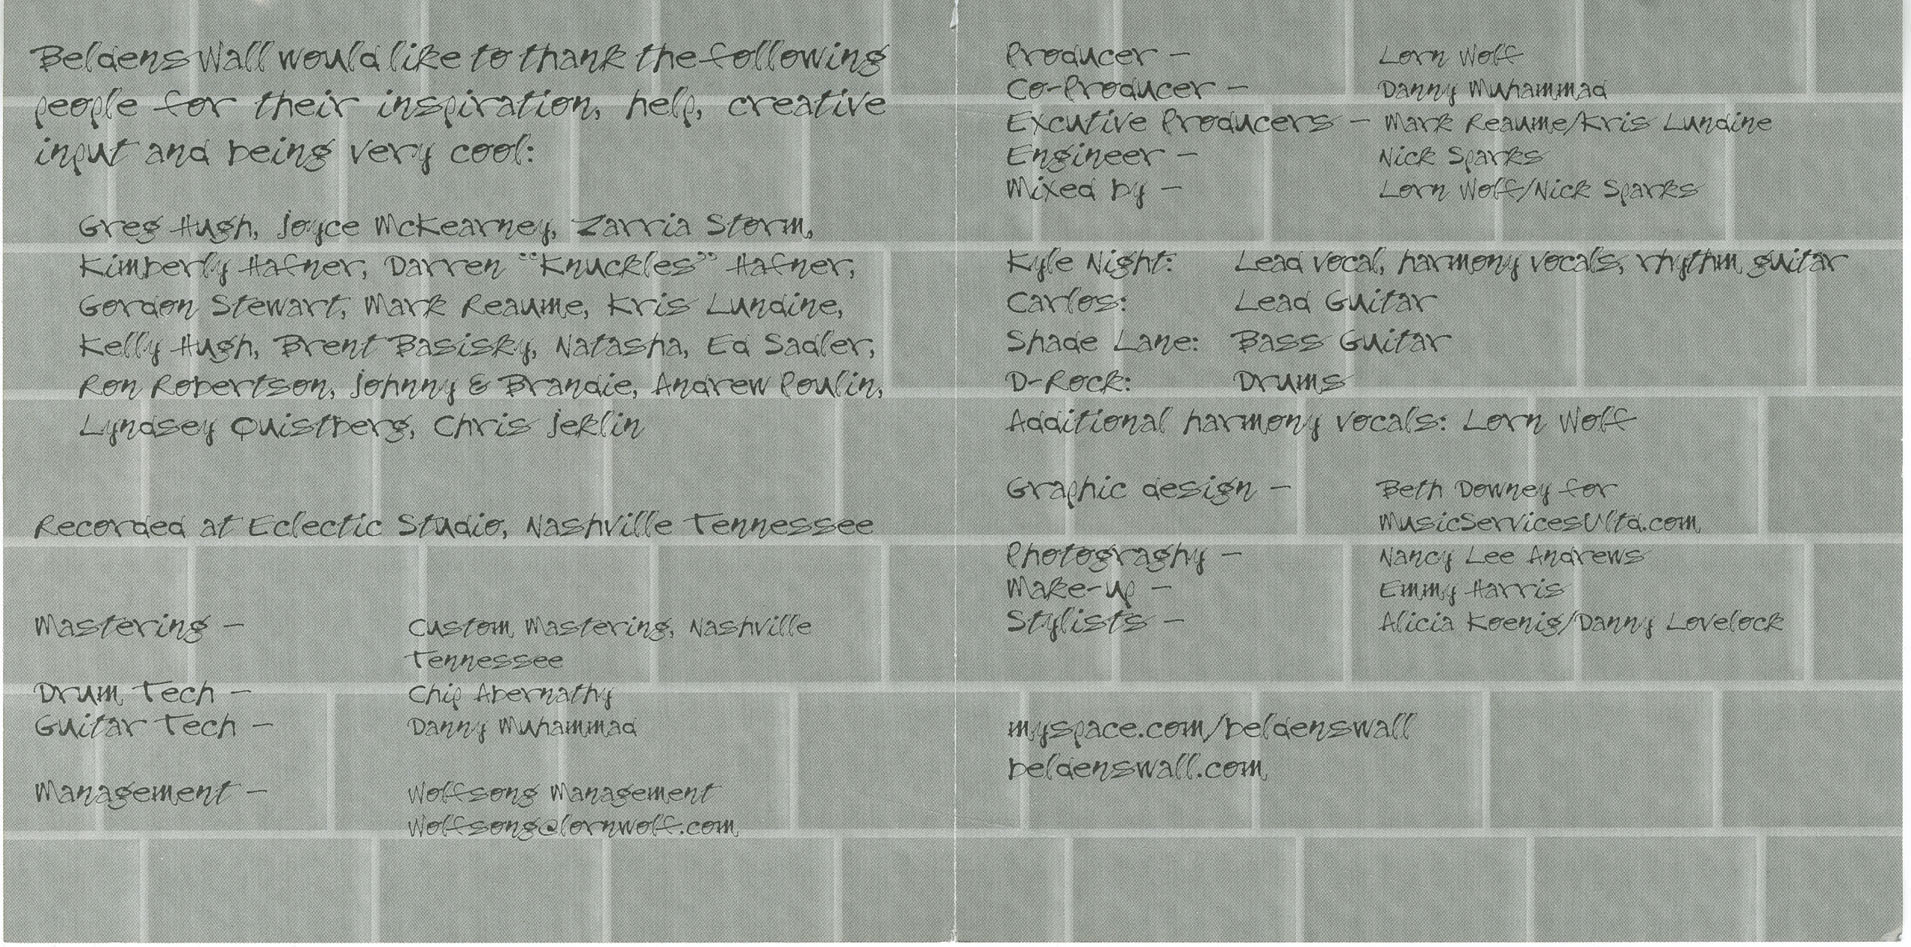 Beldens Wall would like to thank the following
people for their inspiration, help, creative
input and being very cool:
Greg Hugh, Joyce McKearney, Zarria Storm,
Kimberly Hafner, Darren "Knuckles" Hafner,
Gordon Stewart, Mark Reaume, Kris Lundine,
Kelly Hugh, Brent Basisky, Natasha, Ed Sadler,
Ron Robertson, Johnny & Brandie, Andrew Poulin,
Lyndsey Quistberg, Chris Jeklin
Recorded at Eclectic Studio, Nashville Tennessee
Mastering – Custom Mastering, Nashville
Tennessee
Drum Tech – Chip Abernathy
Guitar Tech – Danny Muhammad
Management – Wolfsong Management
Wolfsong@lornwolf.com
Producer – Lorn Wolf
Co-Producer – Danny Muhammad
Excutive Producers – Mark Reaume/Kris Lundine
Engineer – Nick Sparks
Mixed by – Lorn Wolf/Nick Sparks
Kyle Night: Lead vocal, harmony vocals, rhythm guitar
Carlos: Lead Guitar
Shade Lane: Bass Guitar
D-Rock: Drums
Additional harmony vocals: Lorn Wolf
Graphic design – Beth Downey for
MusicServicesUltd.com
Photograghy – Nancy Lee Andrews
Make-up – Emmy Harris
Stylists – Alicia Koenig/Danny Lovelock
myspace.com/beldenswall
beldenswall.com